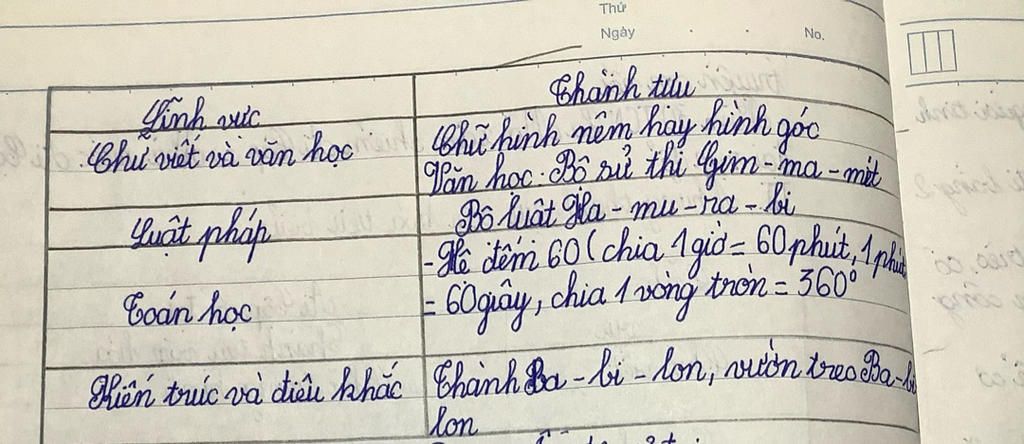 Thứ
Ngày
No.
Lĩnh vực
Thành tựu
Chữ viết và văn học
Chữ hình nêm hay hình góc
Văn học: Bộ sử thi Gim-ma-mét
Luật pháp
Bộ luật Ha-mu-ra-bi
Toán học
-Hệ đếm 60 (chia 1 giờ = 60 phút, 1 phút
= 60 giây, chia 1 vòng tròn = 360°
Kiến trúc và điêu khắc
Thành Ba-bi-lon, vườn treo Ba-bi
lon